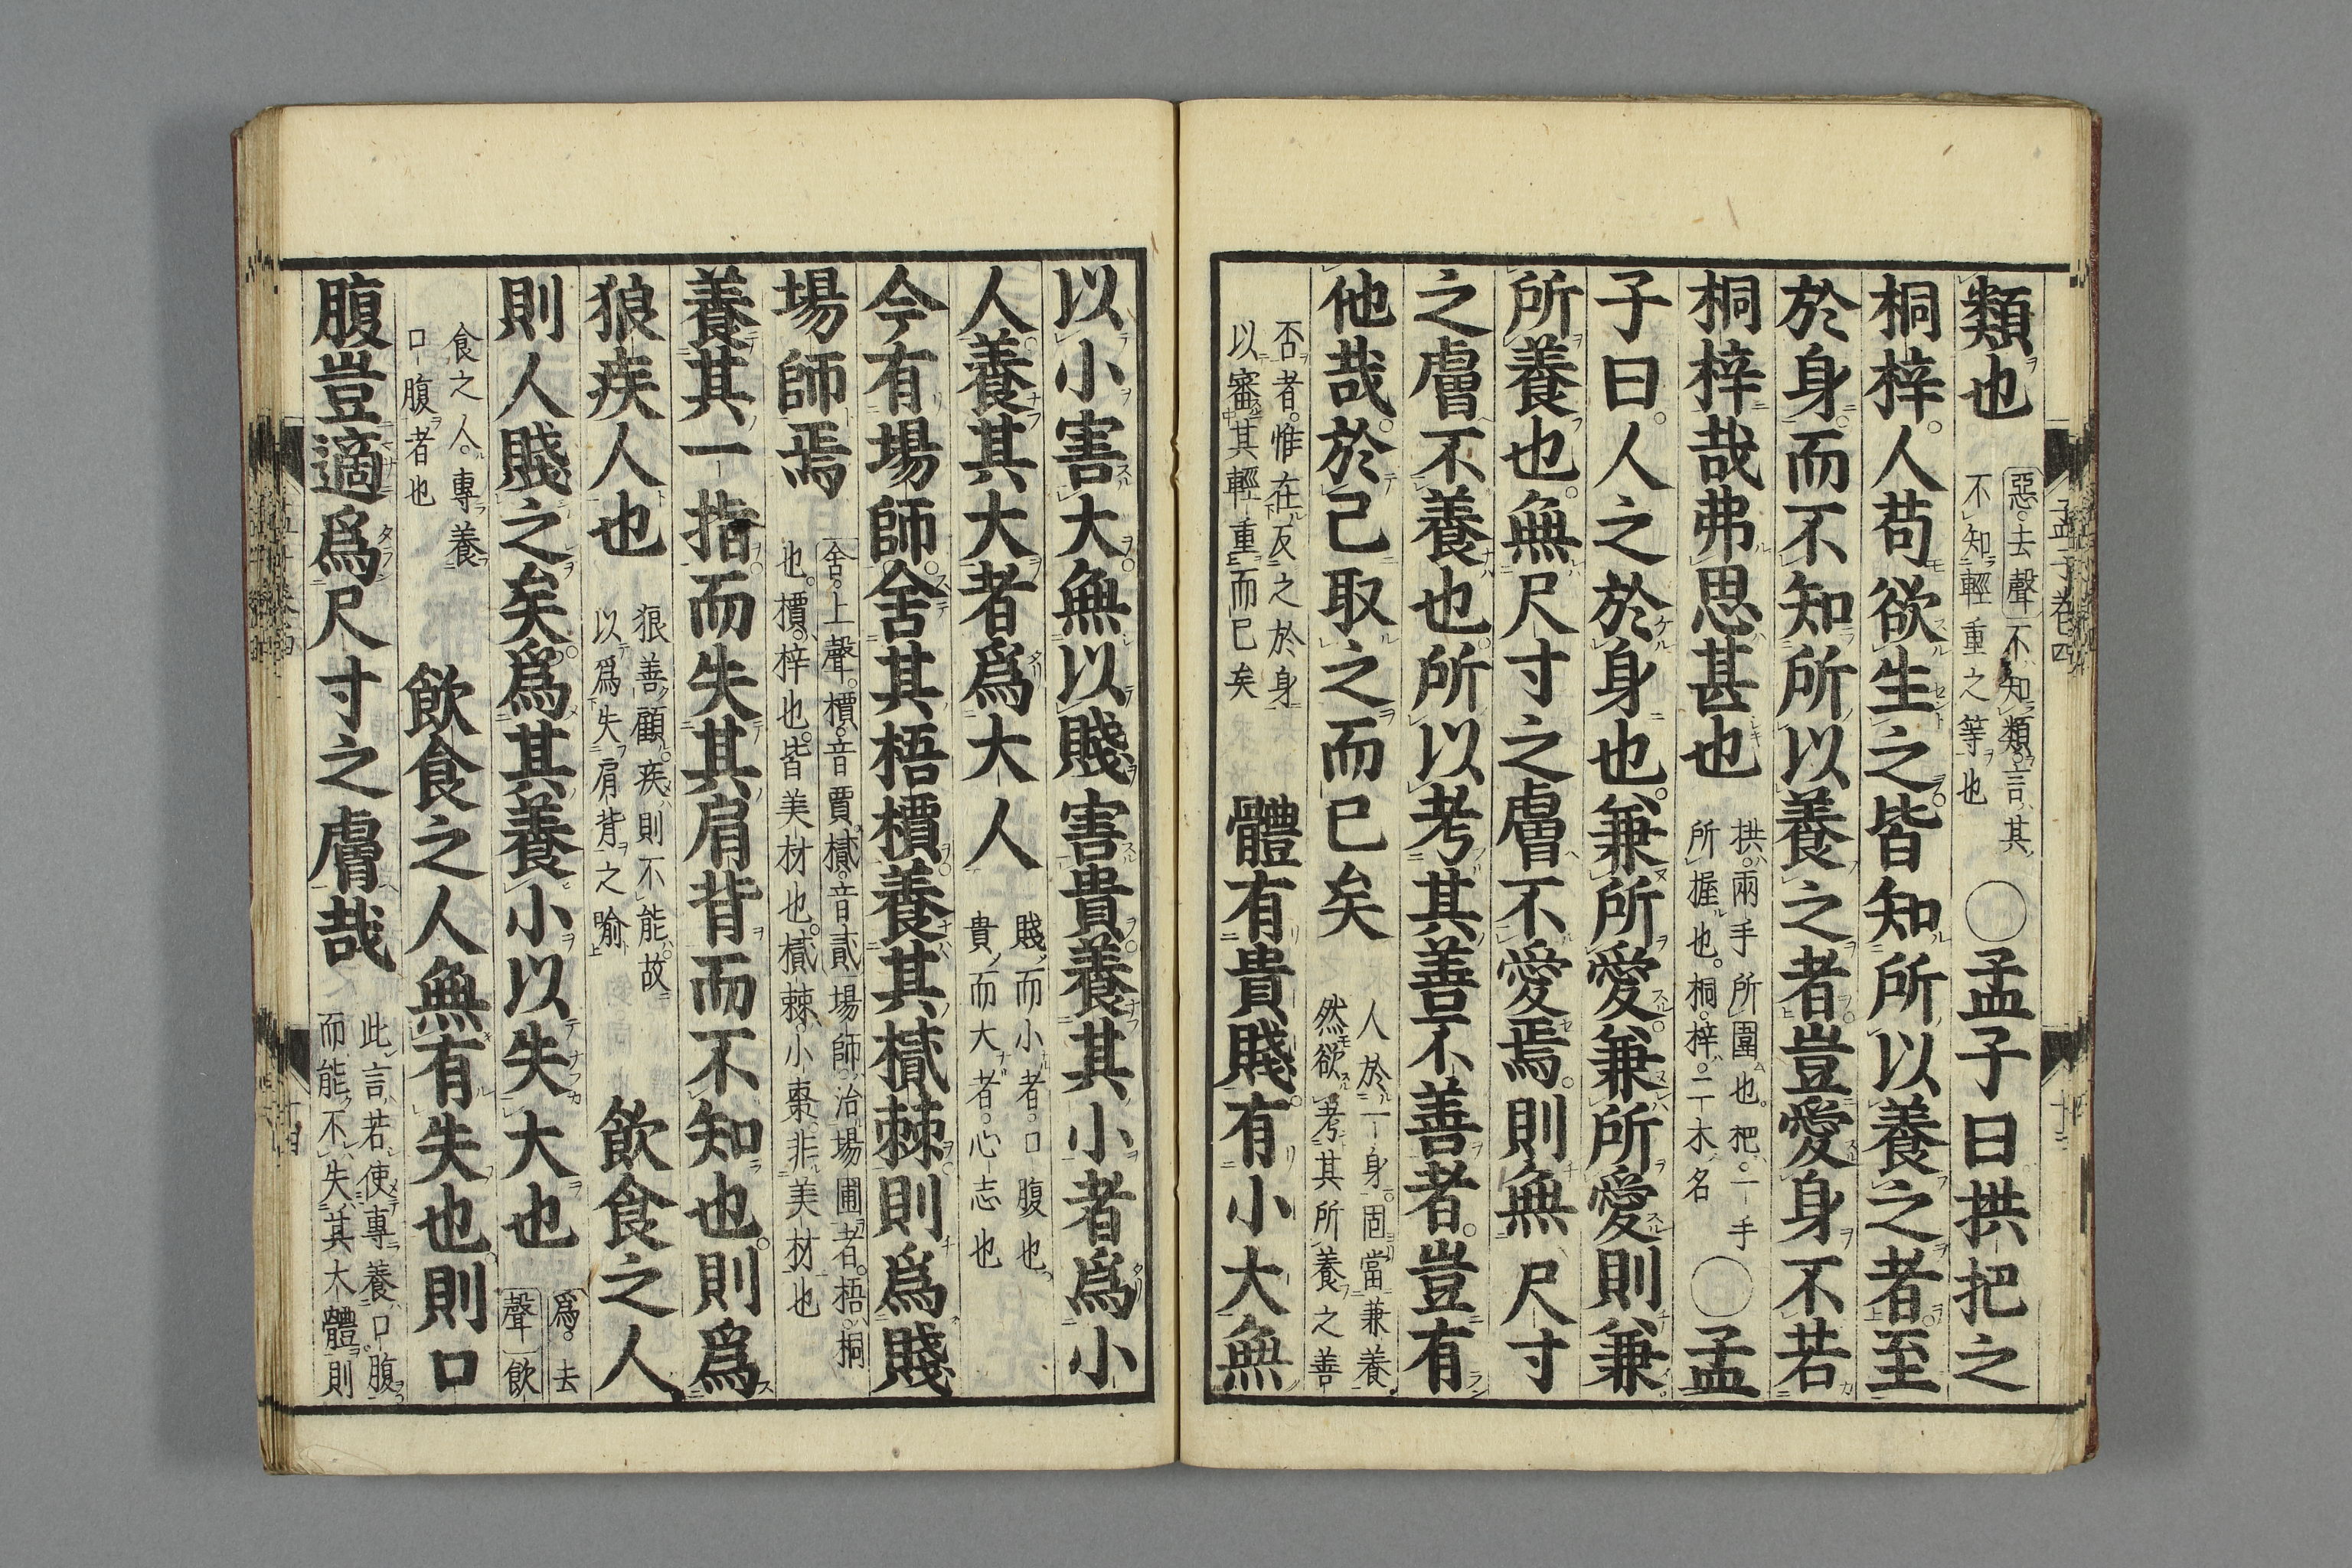 類也惡去聲不知類言其不知輕重之等也○孟子曰拱把之
桐梓人苟欲生之皆知所以養之者至
於身而不知所以養之者豈愛身不若
桐梓哉弗思甚也拱兩手所圍也把一手所握也桐梓二木名○孟
子曰人之於身也兼所愛兼所愛則兼
所養也無尺寸之膚不愛焉則無尺寸
之膚不養也所以考其善不善者豈有
他哉於己取之而已矣人於一身固當兼養然欲考其所養之善
否者惟在反之於身以審其輕重而已矣體有貴賤有小大無
孟子卷四
以小害大無以賤害貴養其小者爲小
人養其大者爲大人賤而小者口腹也貴而大者心志也
今有場師舍其梧檟養其樲棘則爲賤
場師焉舍上聲檟音賈樲音貳場師治場圃者梧桐也檟梓也皆美材也樲棘小棗非美材也
養其一指而失其肩背而不知也則爲
狼疾人也狼善顧疾則不能故以爲失肩背之喩飮食之人
則人賤之矣爲其養小以失大也爲去聲飮
食之人專養口腹者也飮食之人無有失也則口
腹豈適爲尺寸之膚哉此言若使專養口腹而能不失其大體則